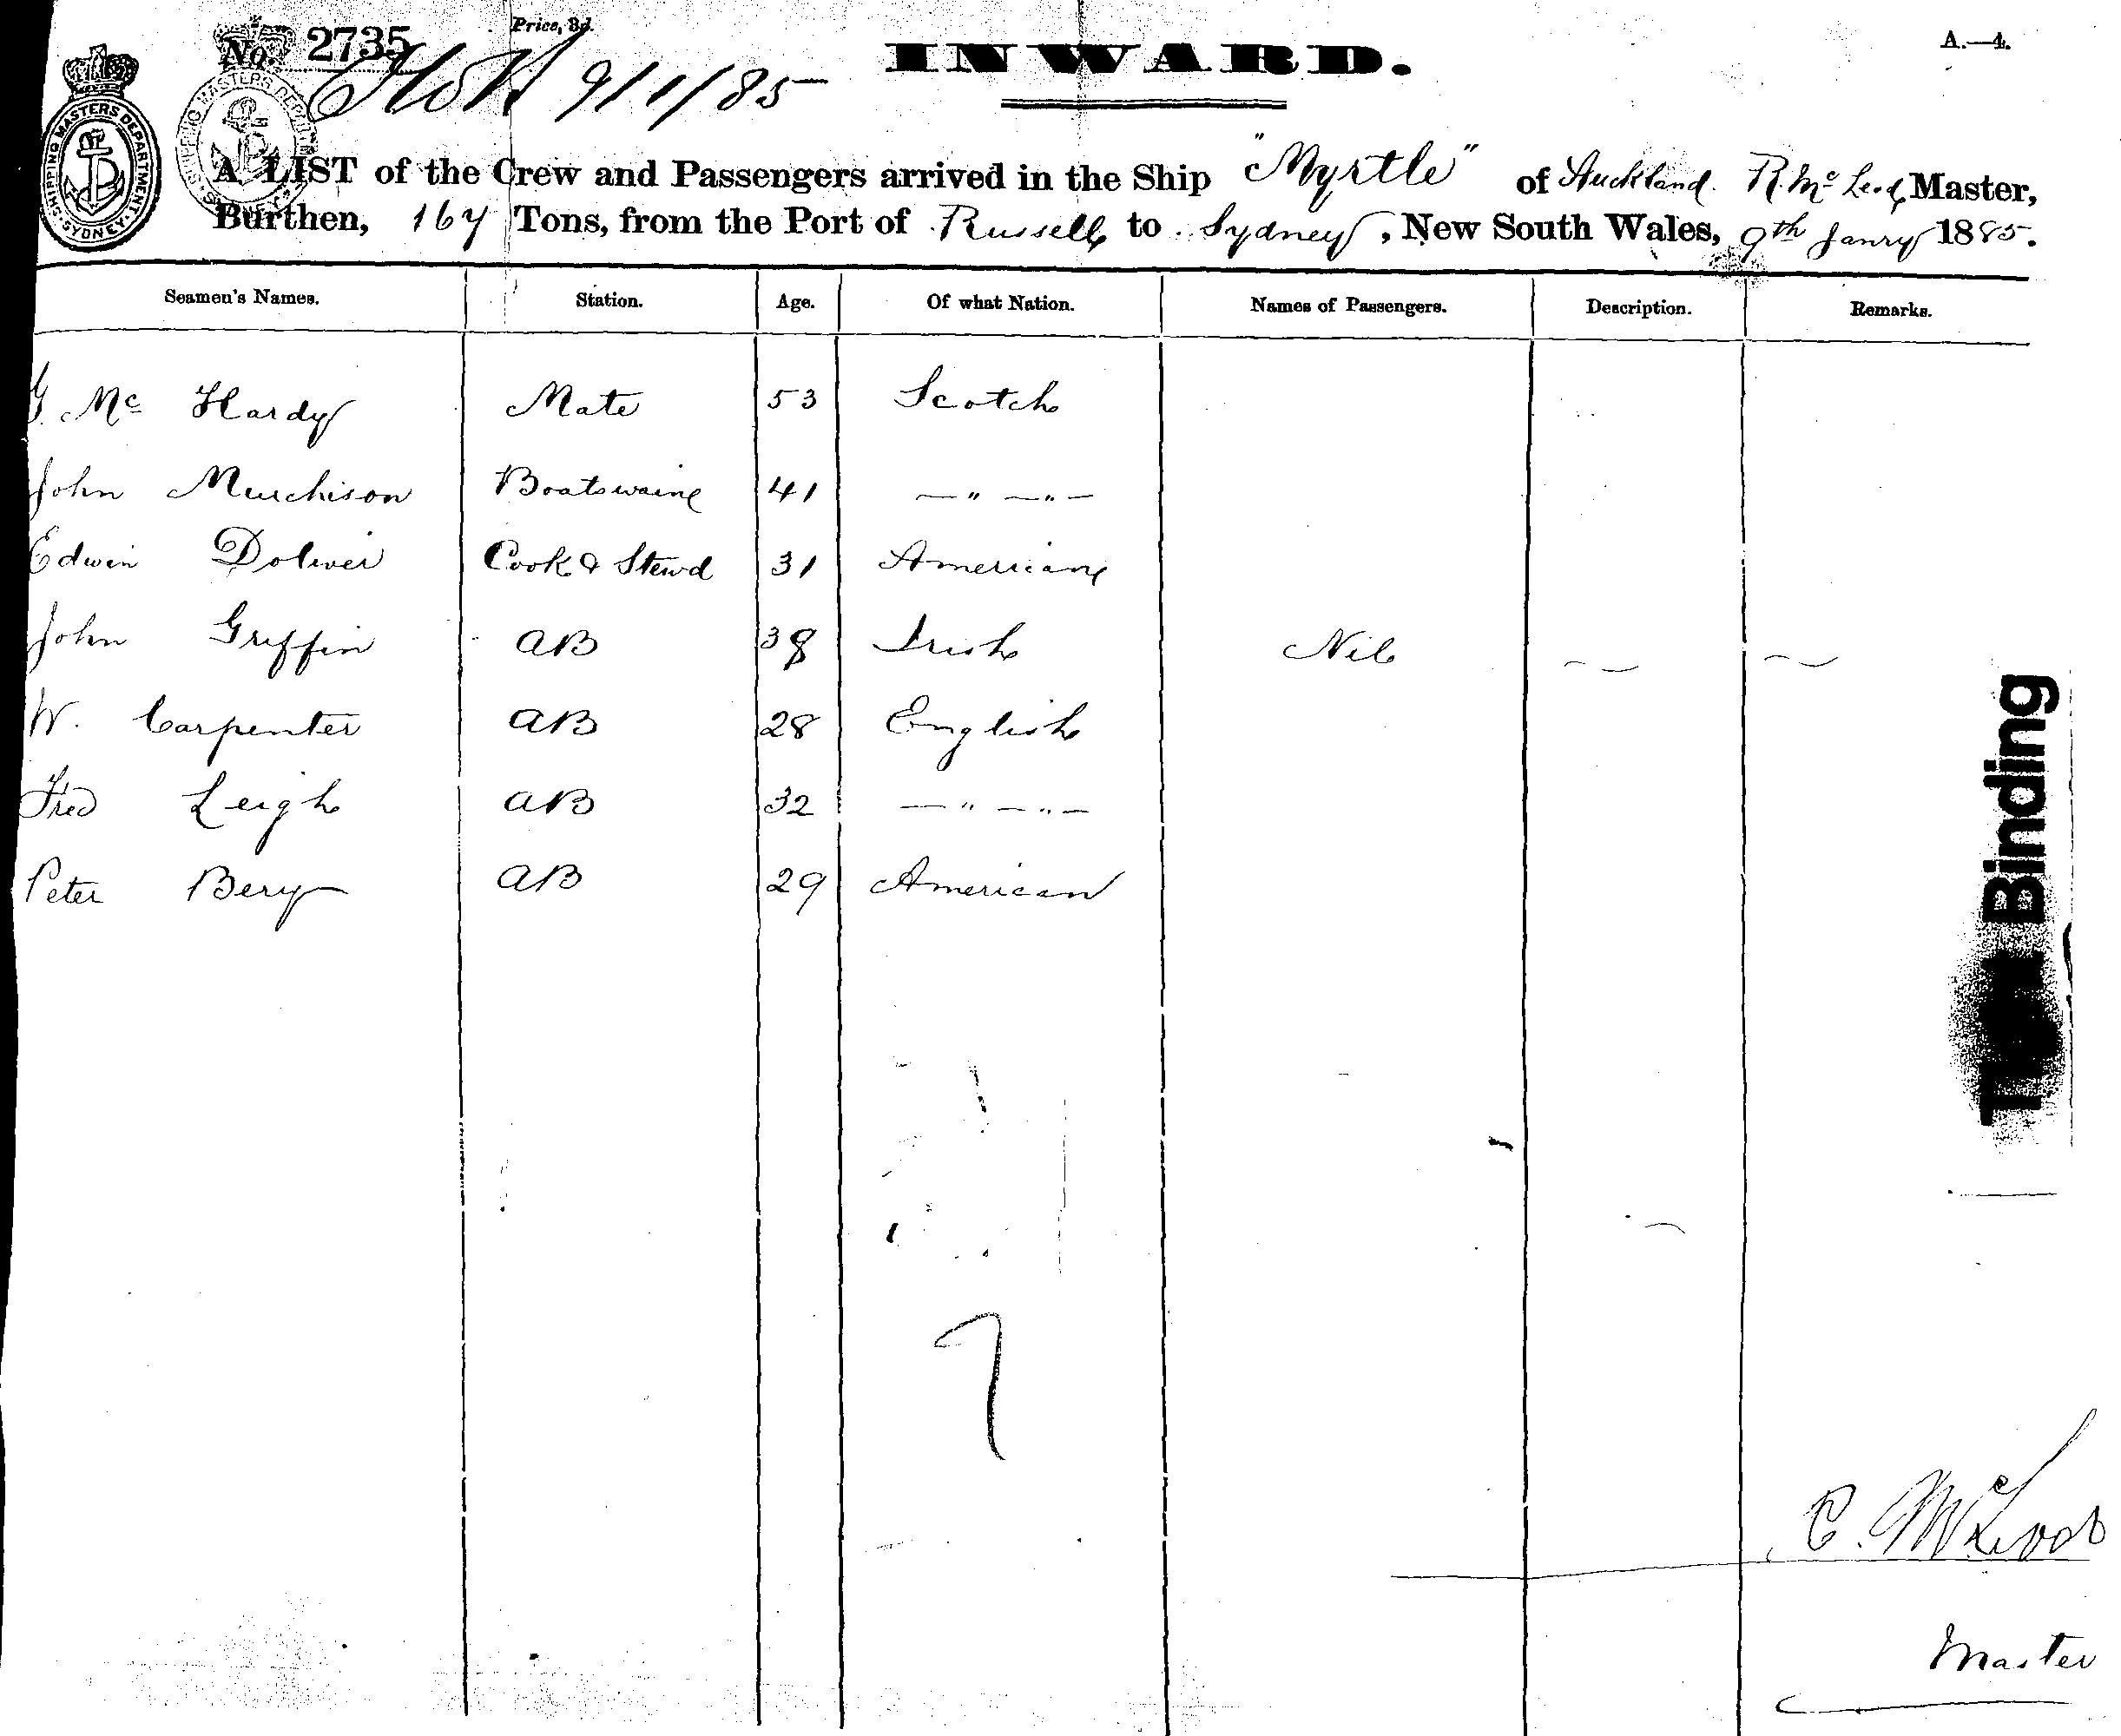 No. 2735
Price, 3d.
INWARD.
A.—4.
9/1/85
SHIPPING MASTERS DEPARTMENT
SYDNEY
A LIST of the Crew and Passengers arrived in the Ship "Myrtle" of Auckland. R. Mc Leod, Master,
Burthen, 167 Tons, from the Port of Russell to Sydney, New South Wales, 9th Janry 1885.
Seamen's Names. Station. Age. Of what Nation. Names of Passengers. Description. Remarks.
G. Mc Hardy Mate 53 Scotch
John Murchison Boatswain 41 — " — " —
Edwin Doliver Cook & Stewd 31 American
John Griffin AB 38 Irish Nil — —
W. Carpenter AB 28 English
Fred Leigh AB 32 — " — " —
Peter Berg AB 29 American
7
McLeod
Master
Binding